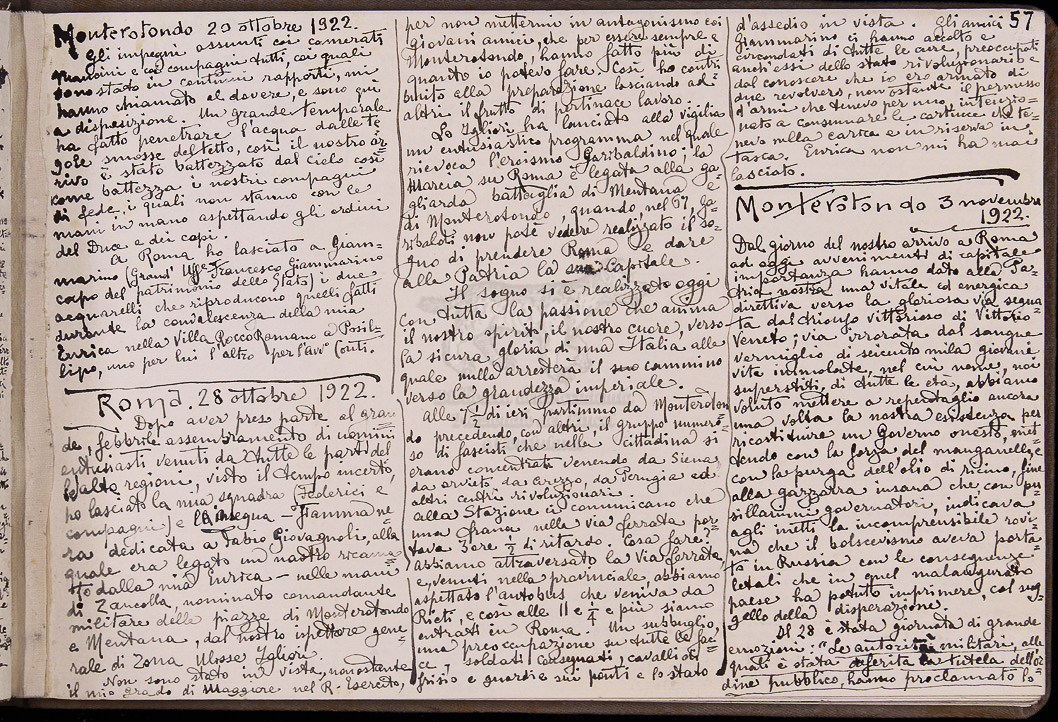 57
Monterotondo 29 ottobre 1922.
Gli impegni assunti coi camerati
Mancini e coi compagni tutti, coi quali
sono stato in continui rapporti, mi
hanno chiamato al dovere, e sono qui
a disposizione. Un grande temporale
ha fatto penetrare l'acqua dalle te=
gole smosse del tetto, così il nostro ar=
rivo è stato battezzato dal cielo così
come battezza i nostri compagni
di fede, i quali non stanno con le
mani in mano aspettando gli ordini
del Duce e dei capi.
A Roma ho lasciato a Giam=
marino (Grand'Uff. Francesco Giammarino
capo del patrimonio dello Stato) i due
acquarelli che riproducono quelli fatti
durante la convalescenza della mia
Enrica nella Villa Rocco Romano a Posil=
lipo, uno per lui l'altro per l'avv. Conti.
Roma. 28 ottobre 1922.
Dopo aver preso parte al gran=
de, febbrile assembramento di uomini
entusiasti venuti da tutte le parti del=
l'alta regione, visto il tempo incerto,
ho lasciato la mia squadra (Federici e
compagni) e l'insegna - Fiamma ne=
ra dedicata a Fabio Giovagnoli, alla
quale era legato un nastro ricama=
to dalla mia Enrica - nelle mani
di Zancolla, nominato comandante
militare delle piazze di Monterotondo
e Mentana, dal nostro ispettore gene=
rale di Zona Ulisse Igliori.
Non sono stato in vista, nonostante
il mio grado di Maggiore nel R. Esercito,
per non mettermi in antagonismo coi
giovani amici, che per essere sempre a
Monterotondo, hanno fatto più di
quanto io potevo fare. Così ho contri=
buito alla preparazione lasciando ad
altri il frutto di pertinace lavoro.
Lo Igliori ha lanciato alla vigilia
un entusiastico programma nel quale
rievoca l'eroismo Garibaldino; la
Marcia su Roma è legata alla ga=
gliarda battaglia di Mentana e
di Monterotondo, quando, nel 67, Ga=
ribaldi non potè vedere realizzato il so=
gno di prendere Roma e dare
alla Patria la sua Capitale.
Il sogno si è realizzato oggi
con tutta la passione che anima
il nostro spirito, il nostro cuore, verso
la sicura gloria di una Italia, alla
quale nulla arresterà il suo cammino
verso la grandezza imperiale.
Alle 7 1/2 di ieri partimmo da Monteroton
do precedendo, con altri, il gruppo numero=
so di fascisti che nella cittadina si
erano concentrati venendo da Siena,
da Orvieto, da Arezzo, da Perugia ed
altri centri rivoluzionari.
Alla Stazione ci comunicano che
una frana nella via ferrata por=
tava 3 ore 1/2 di ritardo. Cosa fare?
abbiamo attraversato la Via ferrata
e, venuti nella provinciale, abbiamo
aspettato l'autobus che veniva da
Rieti, e così alle 11 e 1/4 e più siamo
entrati in Roma. Un subbuglio,
una preoccupazione su tutte le fac=
ce, soldati consegnati, cavalli di
frisio e guardie sui ponti e lo stato
d'assedio in vista. Gli amici
Giammarino ci hanno accolto e
circondati di tutte le cure, preoccupati
anch'essi dello stato rivoluzionario e
dal conoscere che io ero armato di
due revolvers, non ostante il permesso
d'armi che tenevo per uno, intenzio=
nato a consumare le cartucce che te=
nevo nella carica e in riserva in
tasca. Enrica non mi ha mai
lasciato.
Monterotondo 3 novembre
1922.
Dal giorno del nostro arrivo a Roma
ad oggi avvenimenti di capitale
importanza hanno dato alla Pa=
tria nostra una vitale ed energica
direttiva verso la gloriosa via segna
ta dal trionfo vittorioso di Vittorio
Veneto; via irrorata dal sangue
vermiglio di seicento mila giovani
vite immolate, nel cui nome, noi
superstiti, di tutte le età, abbiamo
voluto mettere a repentaglio ancora
una volta la nostra esistenza per
ricostituire un Governo onesto, met=
tendo con la forza, del manganello, e
con la purga dell'olio di ricino, fine
alla gazzarra insana che con pu=
sillanimi governatori, indicava
agli inetti la incomprensibile rovi=
na che il bolscevismo aveva porta=
ta in Russia con le conseguenze
letali che in quel malaugurato
paese ha potuto imprimere, col sug=
gello della disperazione.
Il 28 è stata giornata di grande
emozione: "Le autorità militari, alle
quali è stata deferita la tutela dell'or
dine pubblico, hanno proclamato lo